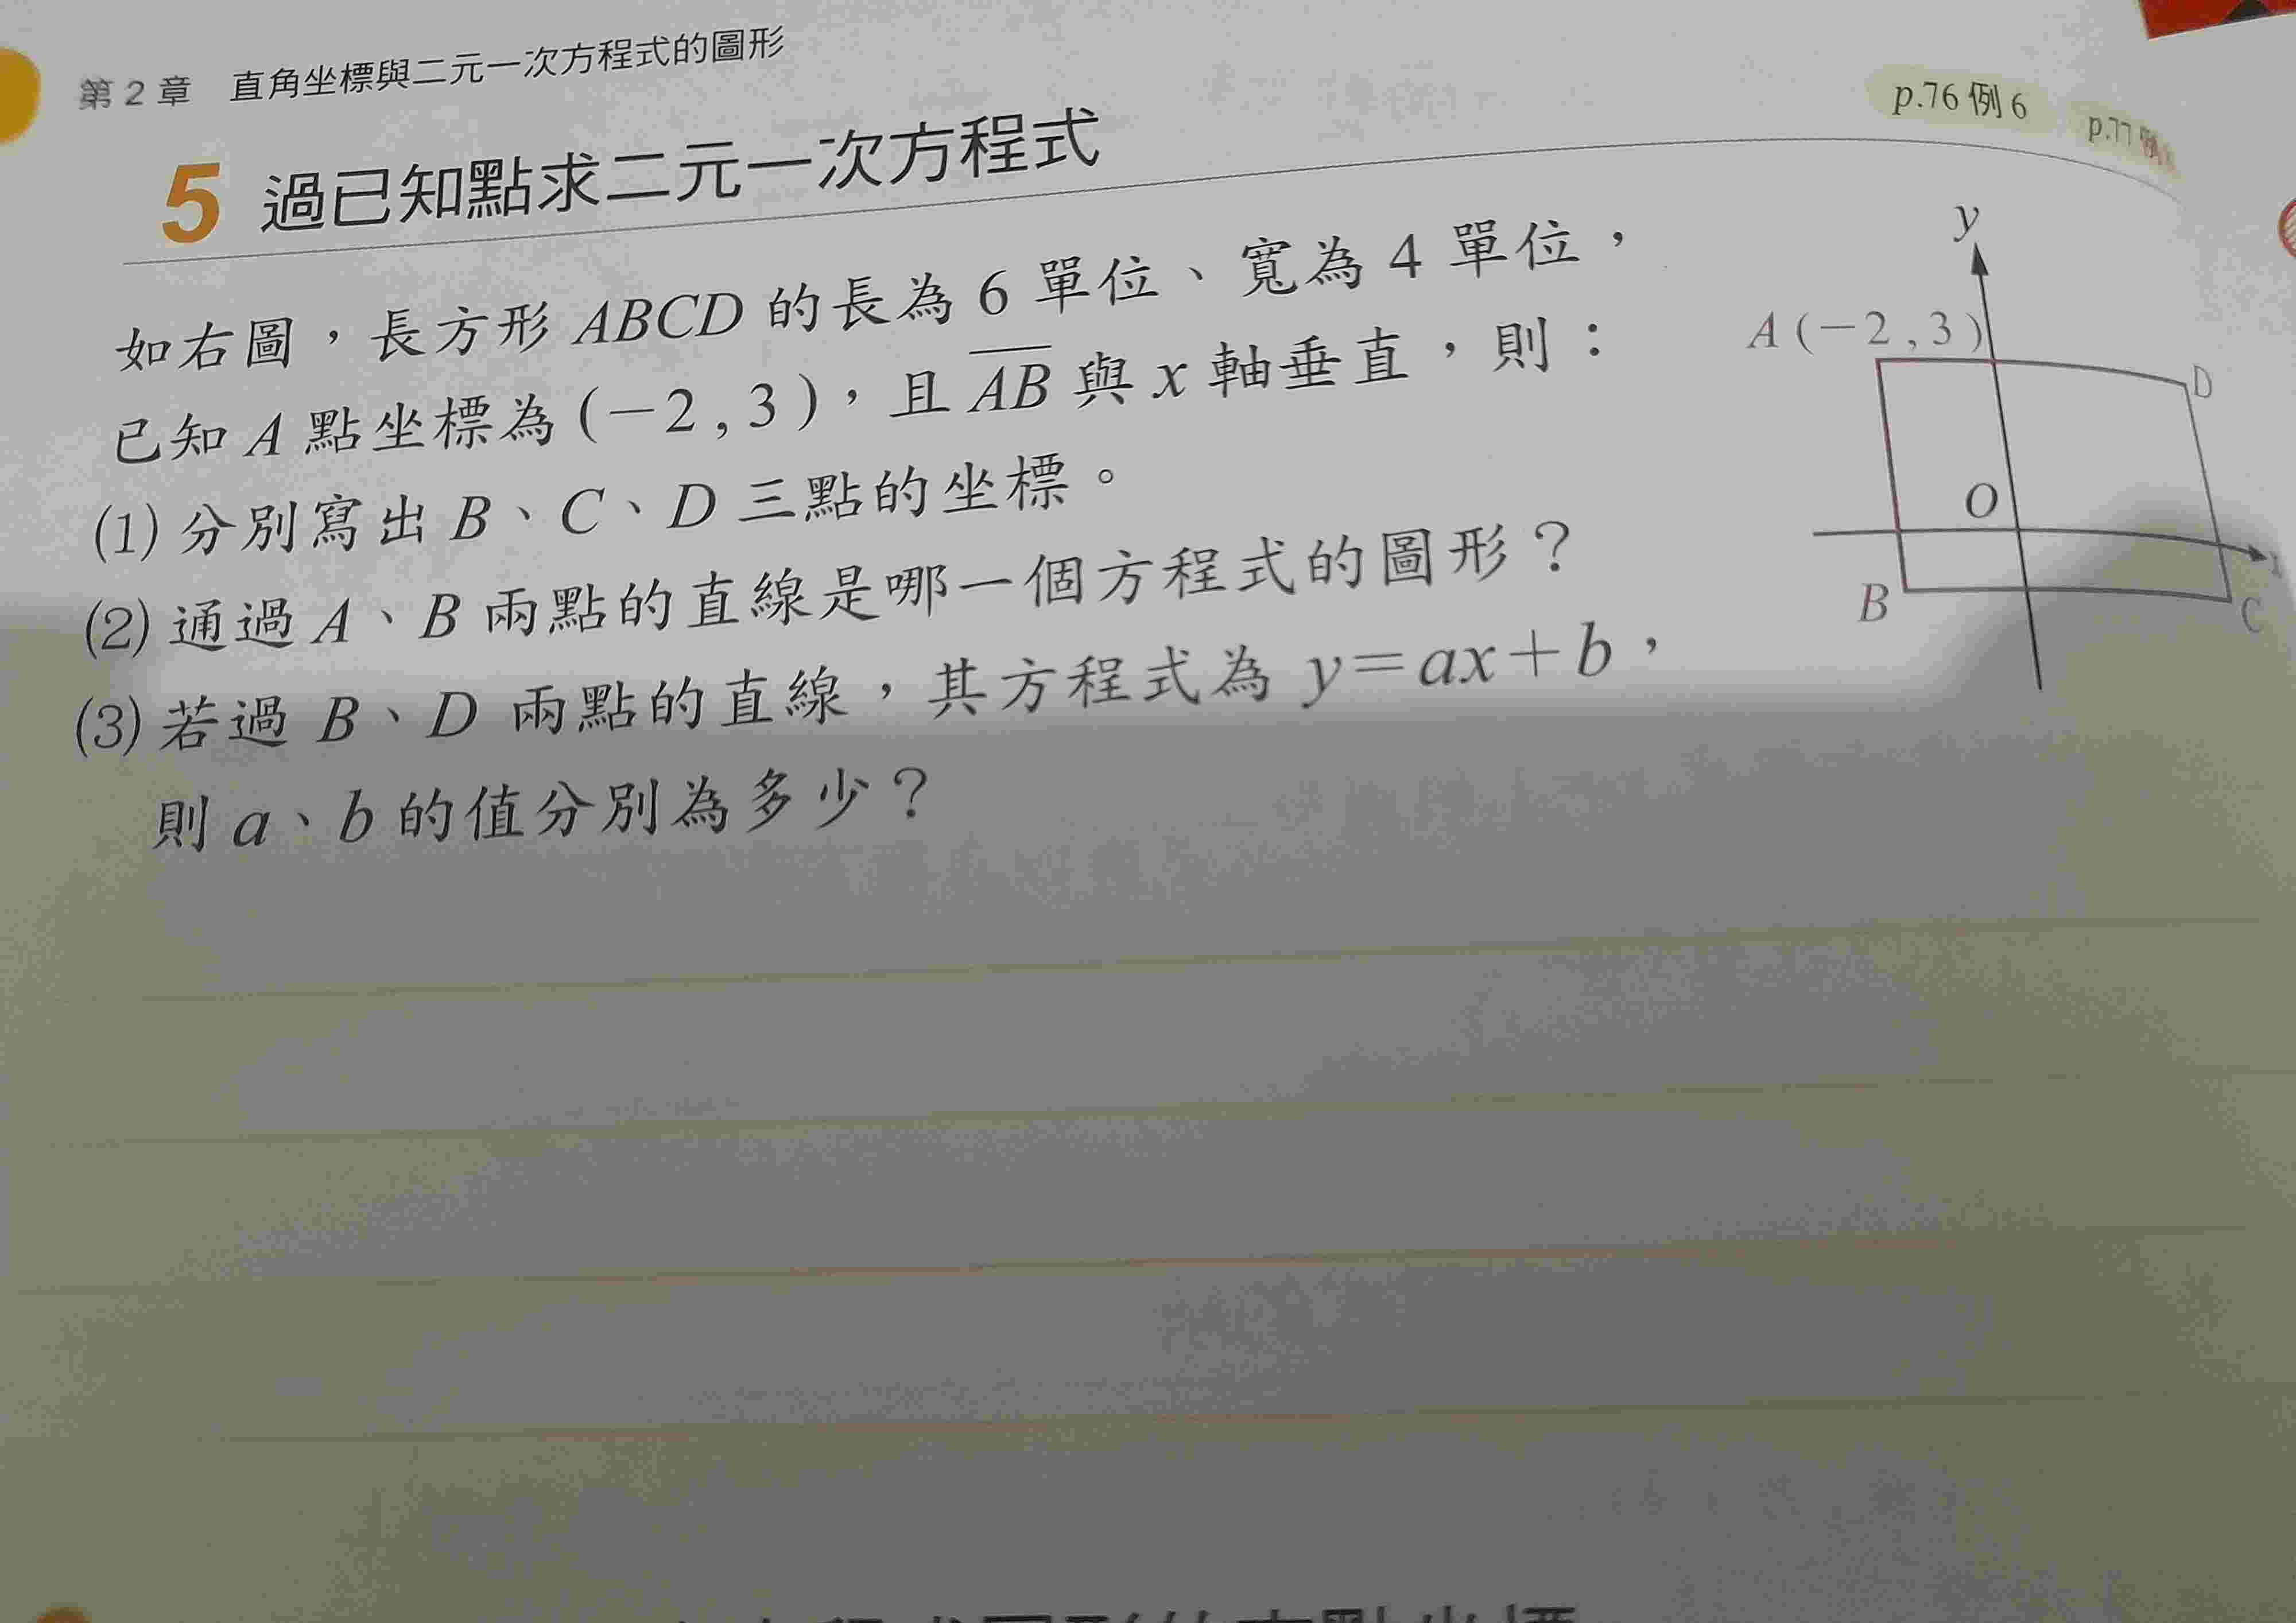 第2章 直角坐標與二元一次方程式的圖形
p.76 例6 p.77
5 過已知點求二元一次方程式
如右圖，長方形 ABCD 的長為 6 單位、寬為 4 單位，
已知 A 點坐標為 (－2 , 3 )，且 AB 與 x 軸垂直，則：
(1) 分別寫出 B、C、D 三點的坐標。
(2) 通過 A、B 兩點的直線是哪一個方程式的圖形？
(3) 若過 B、D 兩點的直線，其方程式為 y＝ax＋b，
則 a、b 的值分別為多少？
y
A (－2 , 3 )
D
O
B
C